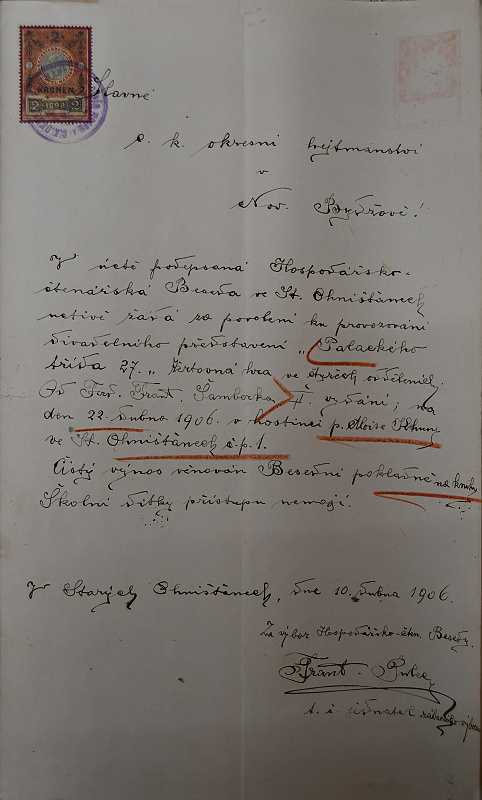 2
KRONEN
2 1898 2
Slavné
c. k. okresní hejtmanství
v
Nov. Bydžově!
V úctě podepsaná Hospodářsko-
čtenářská Beseda ve St. Ohnišťanech
uctivě žádá za povolení ku provozování
divadelního představení „Palackého
třída 27." žertovná hra ve čtyřech odděleních.
Od Ferd. Frant. Šamberka, II. vydání; na
den 22. dubna 1906. v hostinci p. Aloise
ve St. Ohnišťanech č. p. 1.
Čistý výnos věnován Besední pokladně na knihy
Školní dítky přístupu nemají.
V Starých Ohnišťanech, dne 10. dubna 1906.
Za výbor Hospodářsko-čten. Besedy.
Frant.
t. č. jednatel zábavního výboru